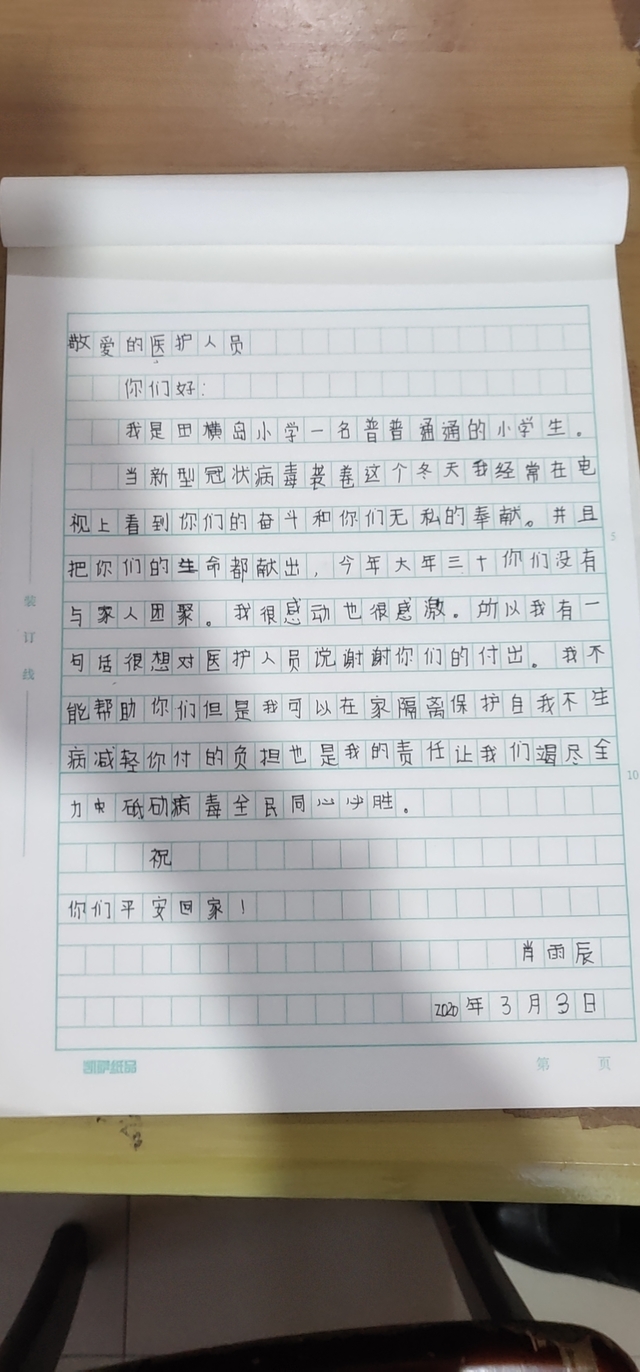 敬爱的医护人员
你们好:
我是田横岛小学一名普普通通的小学生。
当新型冠状病毒袭卷这个冬天我经常在电
视上看到你们的奋斗和你们无私的奉献。并且
把你们的生命都献出,今年大年三十你们没有
与家人团聚。我很感动也很感激。所以我有一
句话很想对医护人员说谢谢你们的付出。我不
能帮助你们但是我可以在家隔离保护自我不生
病减轻你付的负担也是我的责任让我们竭尽全
力 病毒全民同心必胜。
祝
你们平安回家!
肖雨辰
2020年3月3日
装订线
5
10
凯萨纸品
第 页